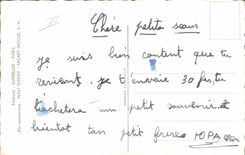 Chère petite sœur
je suis bien content que tu
reviens. je t'envoie 30 frs, tu
t'achetera un petit souvenir. et
bientot ton petit frere
Editions
PARIS
WALT DISNEY MICKEY MOUSE, S. A.